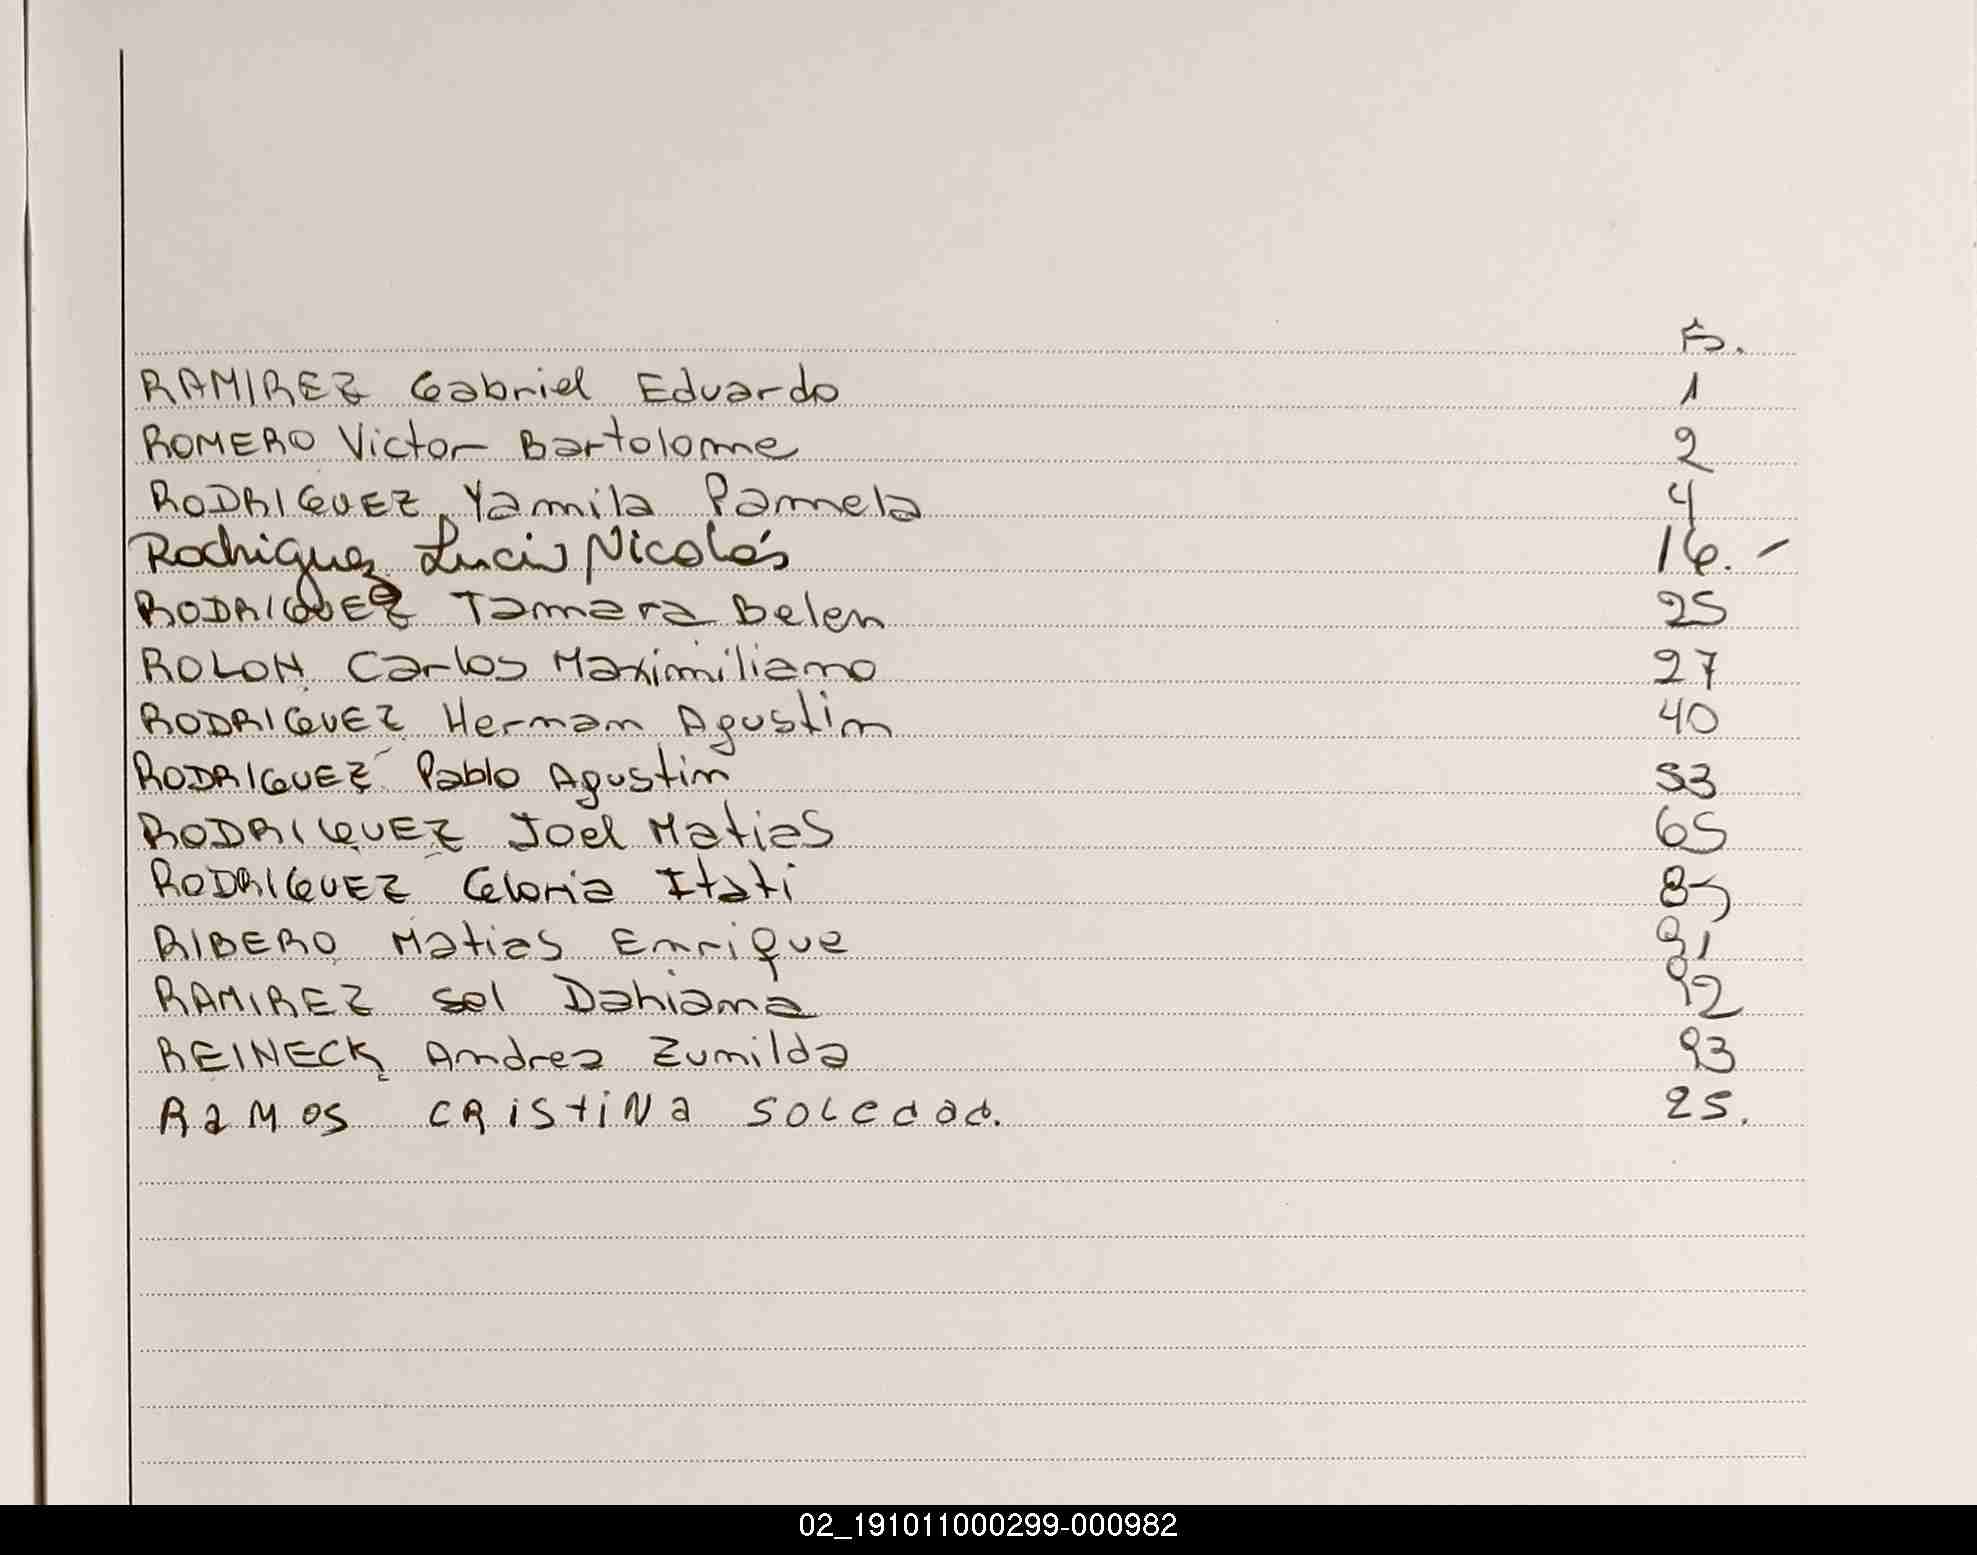 Fs.
RAMIREZ Gabriel Eduardo 1
ROMERO Victor Bartolome 2
RODRIGUEZ, Yamila Pamela 4
Rodriguez Lucio Nicolás 16.-
RODRIGUEZ Tamara Belen 25
ROLON Carlos Maximiliano 27
RODRIGUEZ Hernan Agustin 40
RODRIGUEZ Pablo Agustin 53
RODRIGUEZ Joel Matias 65
RODRIGUEZ Gloria Itati 85
RIBERO Matias Enrique 91
RAMIREZ Sol Dahiana 92
REINECK, Andrea Zunilda 93
RaMOS CRiStiNa SOLEDAD. 25.
02_191011000299-000982